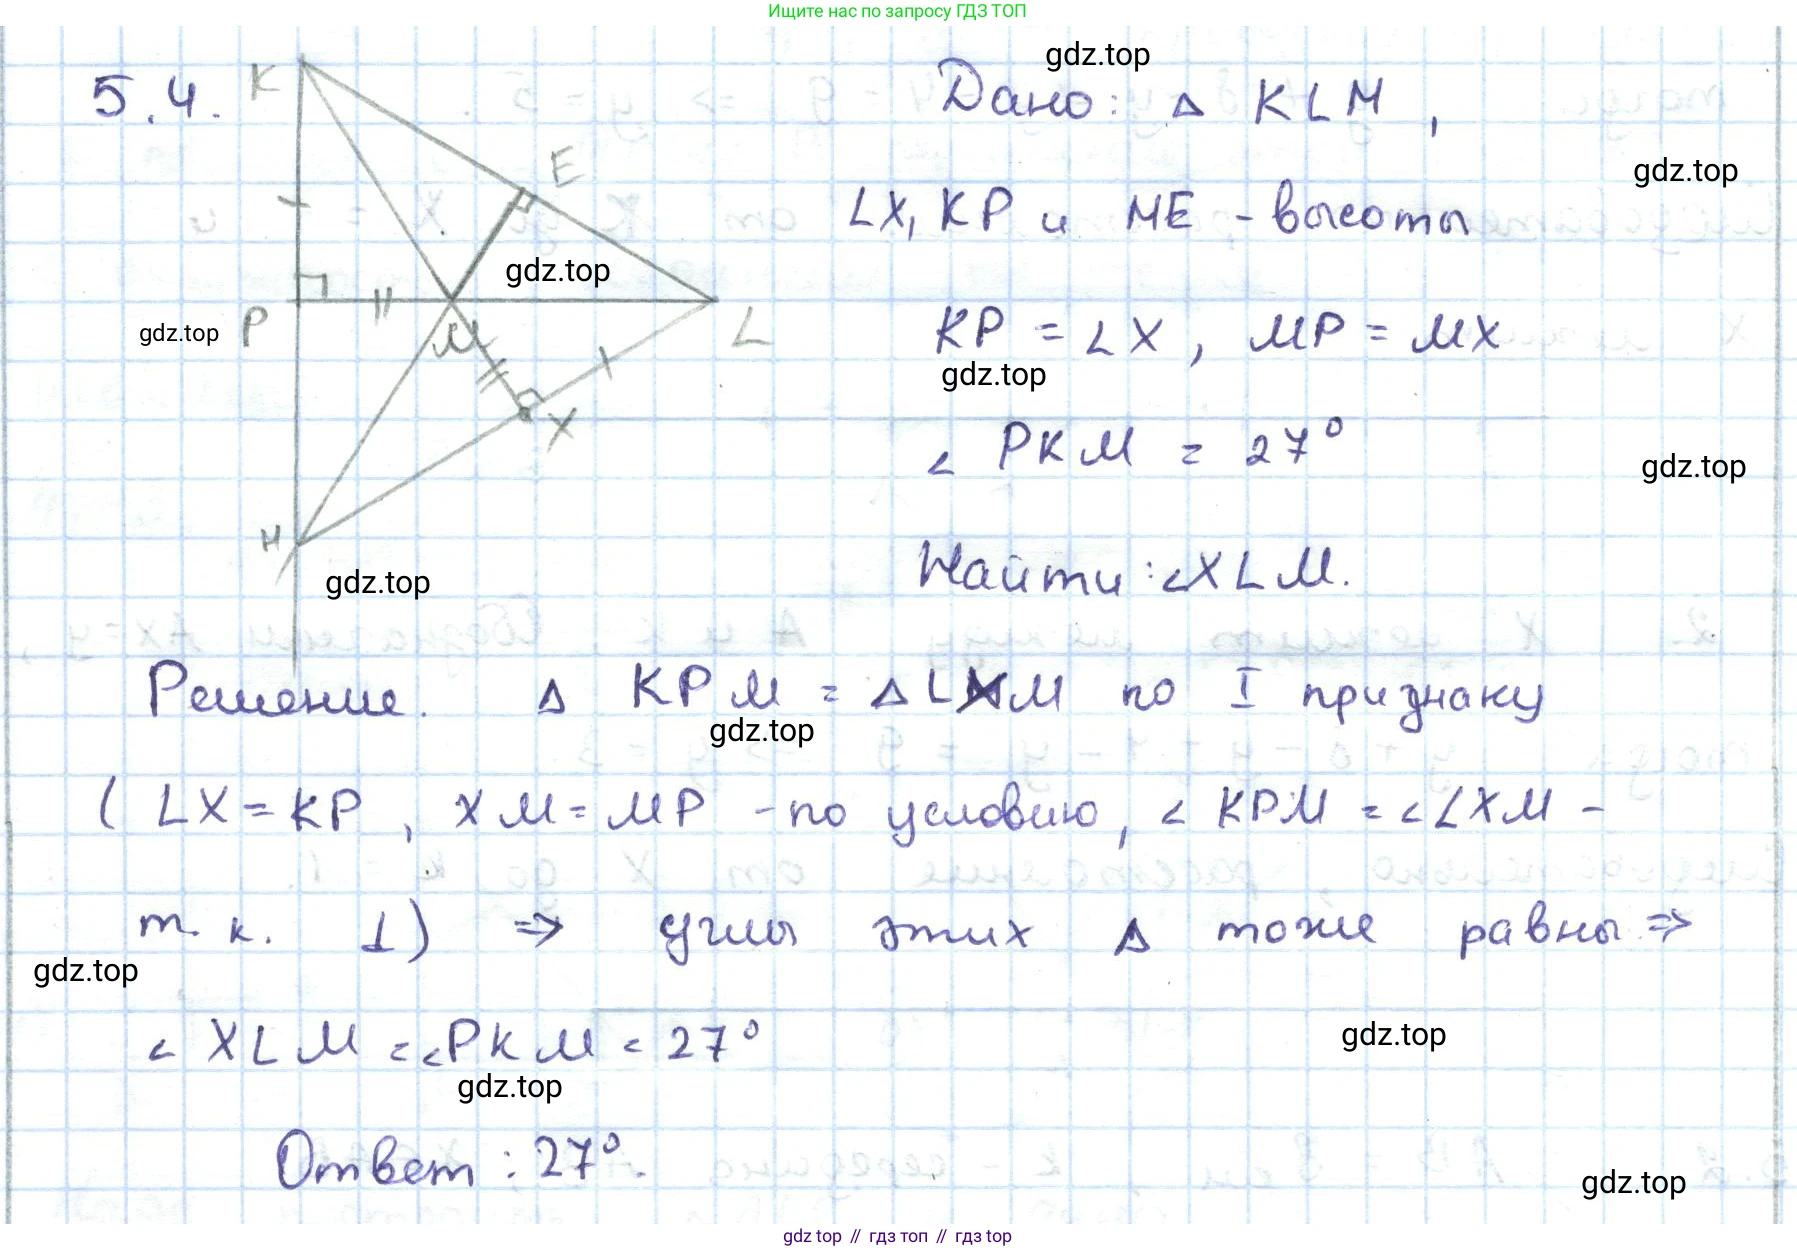 Ищите нас по запросу ГДЗ ТОП
gdz.top
5.4.
K
E
P
M
L
X
H
Дано: Δ KLM,
gdz.top
LX, KP и ME - высоты
gdz.top
gdz.top
KP = LX, MP = MX
gdz.top
∠ PKM = 27°
gdz.top
Найти: ∠XLM.
gdz.top
Решение. Δ KPM = ΔLXM по I признаку
gdz.top
( LX = KP, XM = MP - по условию, ∠ KPM = ∠LXM -
т. к. ⊥) ⇒ углы этих Δ тоже равны ⇒
gdz.top
∠ XLM = ∠PKM = 27°
gdz.top
gdz.top
Ответ: 27°.
gdz.top
gdz.top // гдз топ // гдз top